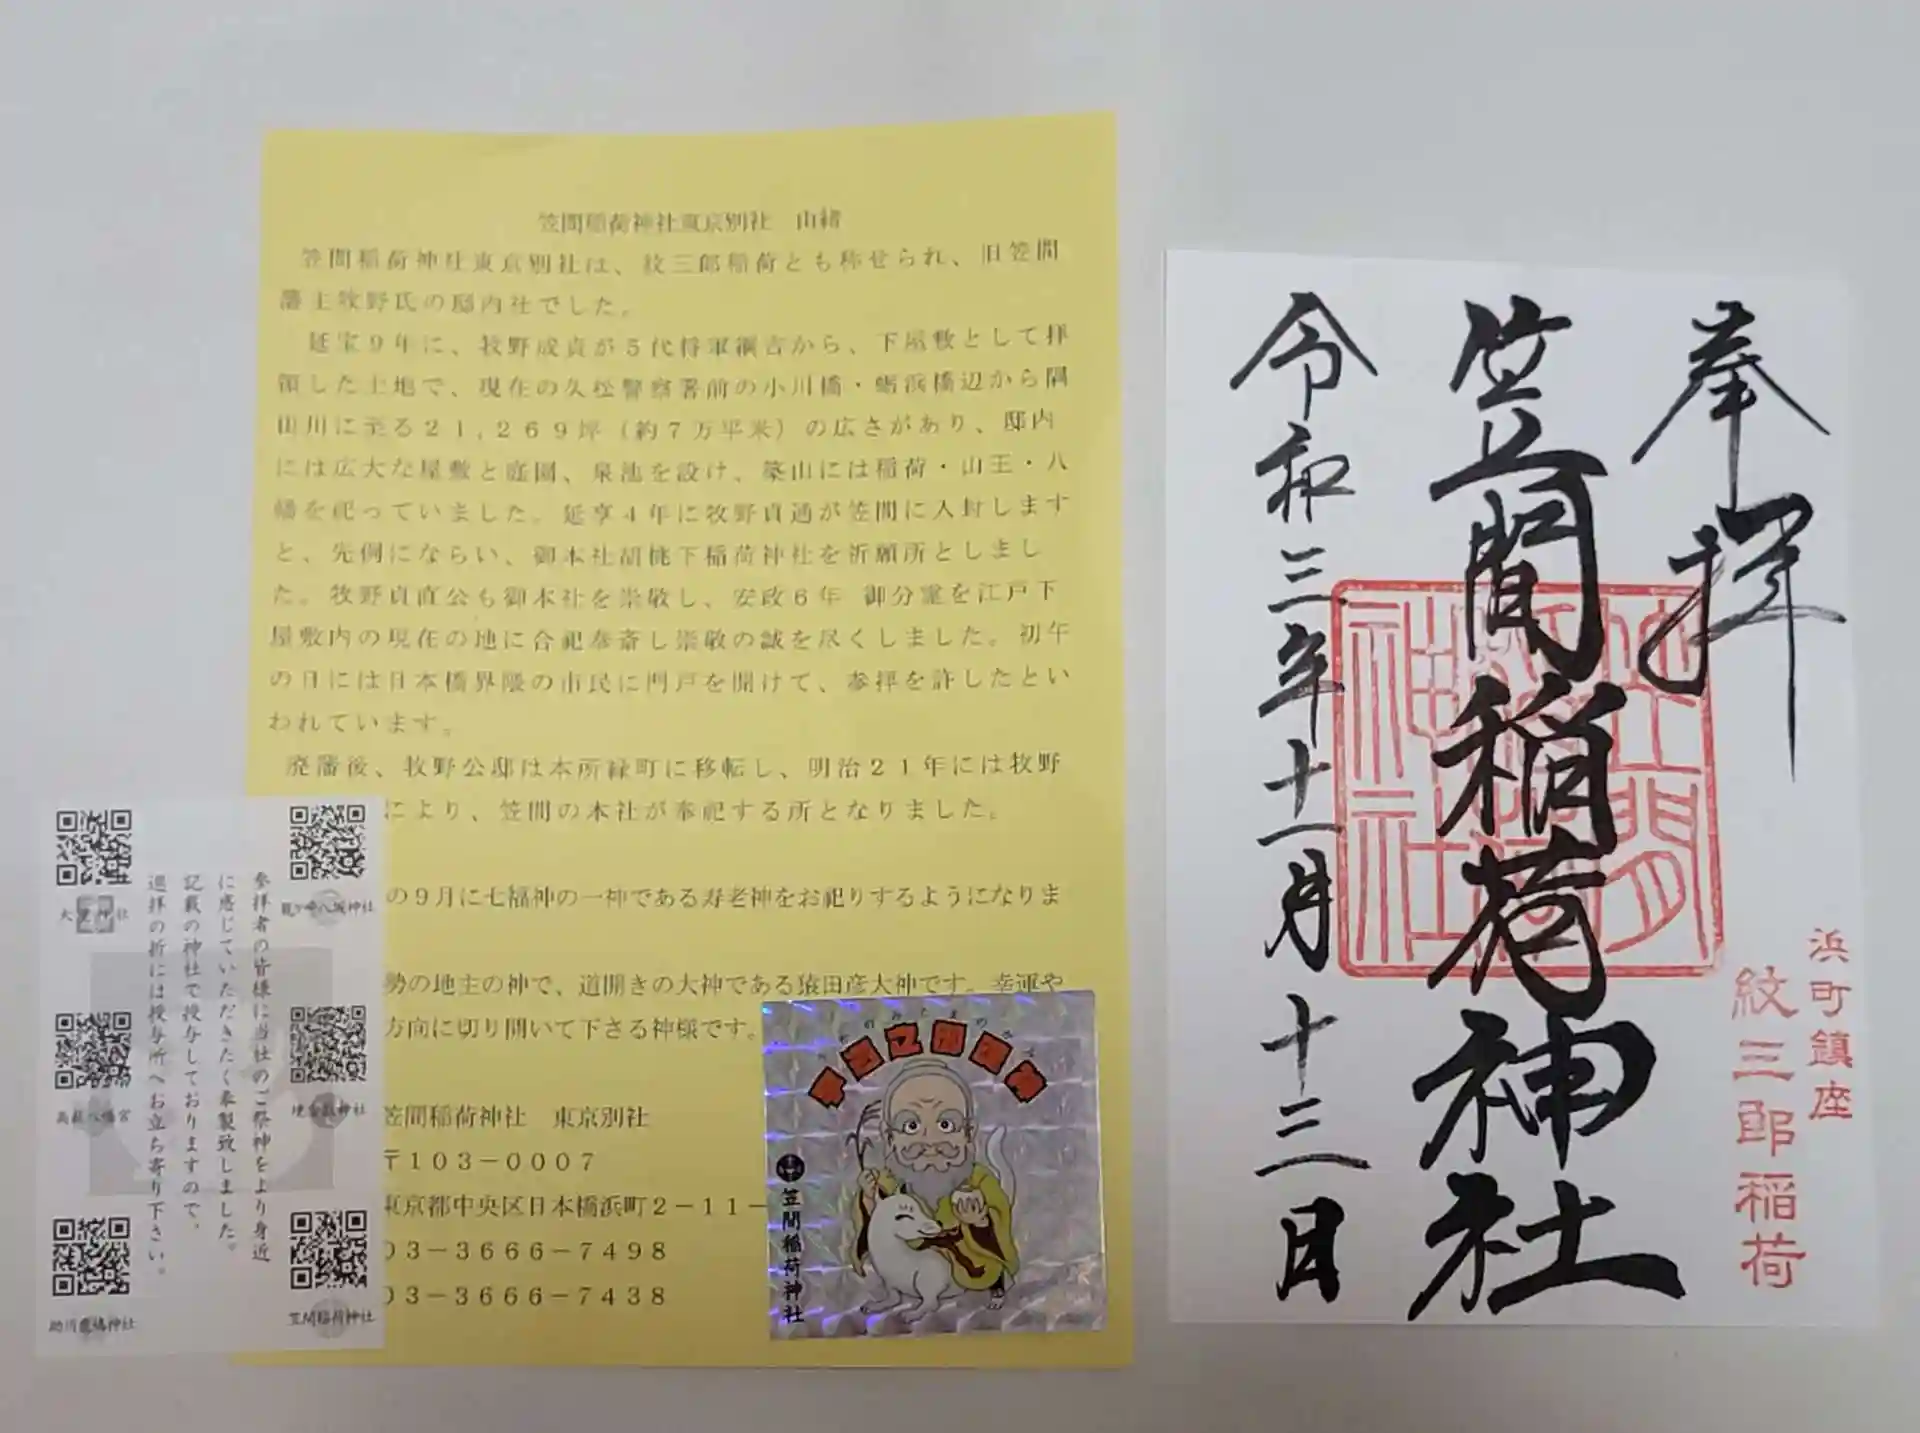 笠間稲荷神社東京別社　由緒
笠間稲荷神社東京別社は、紋三郎稲荷とも称せられ、旧笠間
藩主牧野氏の邸内社でした。
延宝９年に、牧野成貞が５代将軍綱吉から、下屋敷として拝
領した土地で、現在の久松警察署前の小川橋・蛎浜橋辺から隅
田川に至る２１,２６９坪（約７万平米）の広さがあり、邸内
には広大な屋敷と庭園、泉池を設け、築山には稲荷・山王・八
幡を祀っていました。延享４年に牧野貞通が笠間に入封します
と、先例にならい、御本社胡桃下稲荷神社を祈願所としまし
た。牧野貞直公も御本社を崇敬し、安政６年 御分霊を江戸下
屋敷内の現在の地に合祀奉斎し崇敬の誠を尽くしました。初午
の日には日本橋界隈の市民に門戸を開けて、参拝を許したとい
われています。
廃藩後、牧野公邸は本所緑町に移転し、明治２１年には牧野
により、笠間の本社が奉祀する所となりました。
の９月に七福神の一神である寿老神をお祀りするようになりま
勢の地主の神で、道開きの大神である猿田彦大神です。幸運や
方向に切り開いて下さる神様です。
笠間稲荷神社　東京別社
〒１０３－０００７
東京都中央区日本橋浜町２－１１－
０３－３６６６－７４９８
０３－３６６６－７４３８
参拝者の皆様に当社のご祭神をより身近
に感じていただきたく奉製致しました。
記載の神社で授与しておりますので、
巡拝の折には授与所へお立ち寄り下さい。
龍ケ崎八坂神社
笠間稲荷神社
宇迦之御魂神
笠間稲荷神社
奉拝
笠間稲荷神社
令和三年十一月十三日
浜町鎮座
紋三郎稲荷
笠間
稲荷
神社